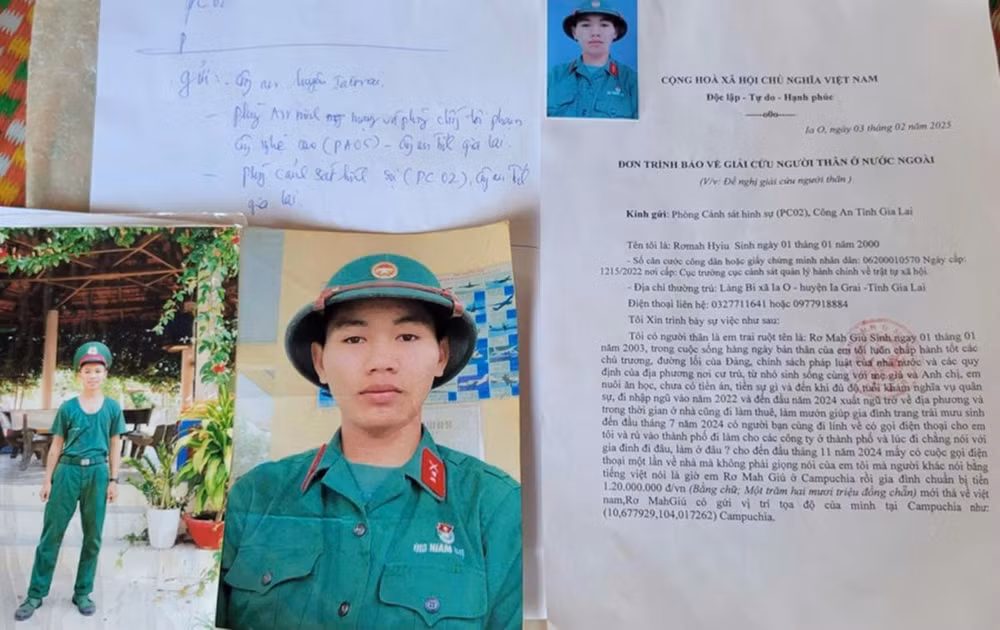 PC.02
gửi: - Công an huyện Ia Grai.
- phòng An ninh mạng và phòng chống tội phạm
công nghệ cao (PA05) - Công an Tỉnh gia lai.
- phòng Cảnh sát hình sự (PC02), Công an Tỉnh
gia lai.
CỘNG HOÀ XÃ HỘI CHỦ NGHĨA VIỆT NAM
Độc lập - Tự do - Hạnh phúc
-----o0o-----
Ia O, ngày 03 tháng 02 năm 2025
ĐƠN TRÌNH BÁO VỀ GIẢI CỨU NGƯỜI THÂN Ở NƯỚC NGOÀI
(V/v: Đề nghị giải cứu người thân)
Kính gửi: Phòng Cảnh sát hình sự (PC02), Công An Tỉnh Gia Lai
Tên tôi là: Rơmah Hyiu Sinh ngày 01 tháng 01 năm 2000
- Số căn cước công dân hoặc giấy chứng minh nhân dân: 06200010570 Ngày cấp:
1215/2022 nơi cấp: Cục trưởng cục cảnh sát quản lý hành chính về trật tự xã hội.
- Địa chỉ thường trú: Làng Bi xã Ia O - huyện Ia Grai -Tỉnh Gia Lai
Điện thoại liên hệ: 0327711641 hoặc 0977918884
Tôi Xin trình bày sự việc như sau:
Tôi có người thân là em trai ruột tên là: Rơ Mah Giú Sinh ngày 01 tháng 01
năm 2003, trong cuộc sống hàng ngày bản thân của em tôi luôn chấp hành tốt các
chủ trương, đường lối của Đảng, chính sách pháp luật của nhà nước và các quy
định của địa phương nơi cư trú, từ nhỏ sinh sống cùng với mẹ già và Anh chị, em
nuôi ăn học, chưa có tiền án, tiền sự gì và đến khi đủ độ tuổi khám nghĩa vụ quân
sự, đi nhập ngũ vào năm 2022 và đến đầu năm 2024 xuất ngũ trở về địa phương và
trong thời gian ở nhà cũng đi làm thuê, làm mướn giúp gia đình trang trải mưu sinh
đến đầu tháng 7 năm 2024 có người bạn cùng đi lính về có gọi điện thoại cho em
tôi và rủ vào thành phố đi làm cho các công ty ở thành phố và lúc đi chẳng nói với
gia đình đi đâu, làm ở đâu ? cho đến đầu tháng 11 năm 2024 mấy có cuộc gọi điện
thoại một lần về nhà mà không phải giọng nói của em tôi mà người khác nói bằng
tiếng việt nói là giờ em Rơ Mah Giú ở Campuchia rồi gia đình chuẩn bị tiền
1.20.000.000 đ/vn (Bằng chữ; Một trăm hai mươi triệu đồng chẵn) mới thả về việt
nam,Rơ MahGiú có gửi vị trí tọa độ của mình tại Campuchia như:
(10,677929,104,017262) Campuchia.